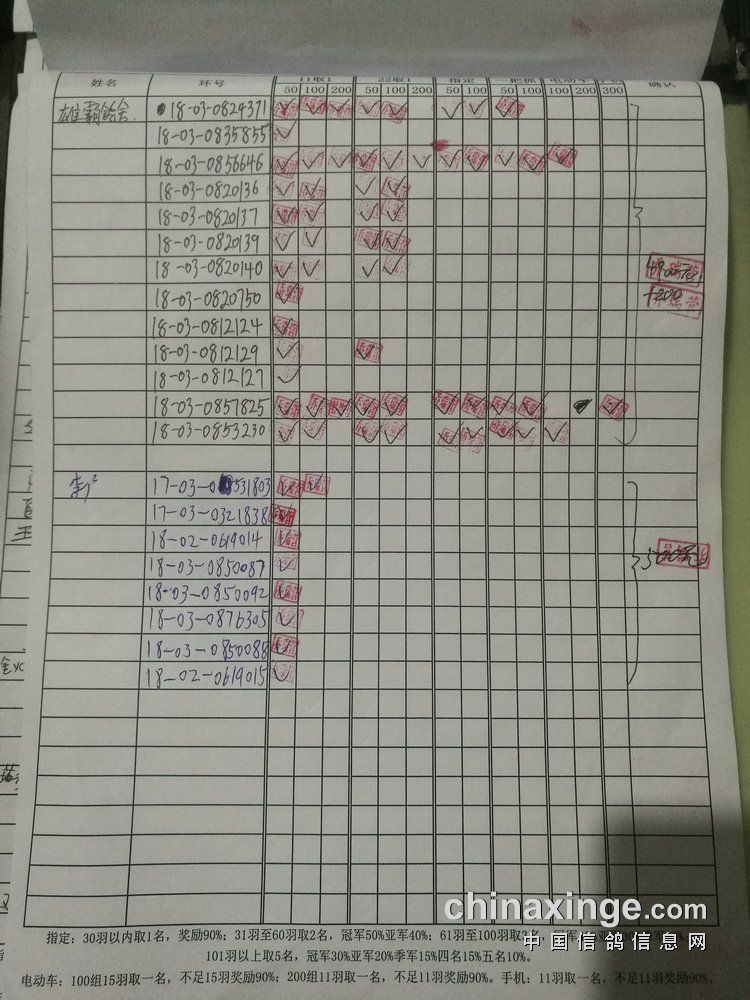 姓名 环号 11取1 22取1 指定 一把抓 电动车 手机 确认
50 100 200 50 100 200 50 100 50 100 100 200 300
18-03-0824371 ✓ ✓ ✓ ✓ ✓ ✓ ✓ ✓
18-03-0835855 ✓
18-03-0856646 ✓ ✓ ✓ ✓ ✓ ✓ ✓ ✓ ✓ ✓ ✓
18-03-0820136 ✓ ✓ ✓ ✓
18-03-0820137 ✓ ✓ ✓ ✓
18-03-0820139 ✓ ✓ ✓ ✓
18-03-0820140 ✓ ✓ ✓ ✓
18-03-0820750 ✓
18-03-0812124 ✓
18-03-0812129 ✓ ✓
18-03-0812127 ✓
18-03-0857825 ✓ ✓ ✓ ✓ ✓ ✓ ✓ ✓ ✓ ✓
18-03-0853230 ✓ ✓ ✓ ✓ ✓ ✓ ✓ ✓ ✓
17-03-0531803 ✓ ✓
17-03-0321838
18-02-0619014 ✓
18-03-0850087 ✓
18-03-0850092 ✓
18-03-0876305 ✓
18-03-0850088 ✓
18-02-0619015 ✓
指定：30羽以内取1名，奖励90%；31羽至60羽取2名，冠军50%亚军40%；61羽至100羽取3名，
101羽以上取5名，冠军30%亚军20%季军15%四名15%五名10%。
电动车：100组15羽取一名，不足15羽奖励90%；200组11羽取一名，不足11羽奖励90%。手机：11羽取一名，不足11羽奖励90%。
chinaxinge.com
中国信鸽信息网